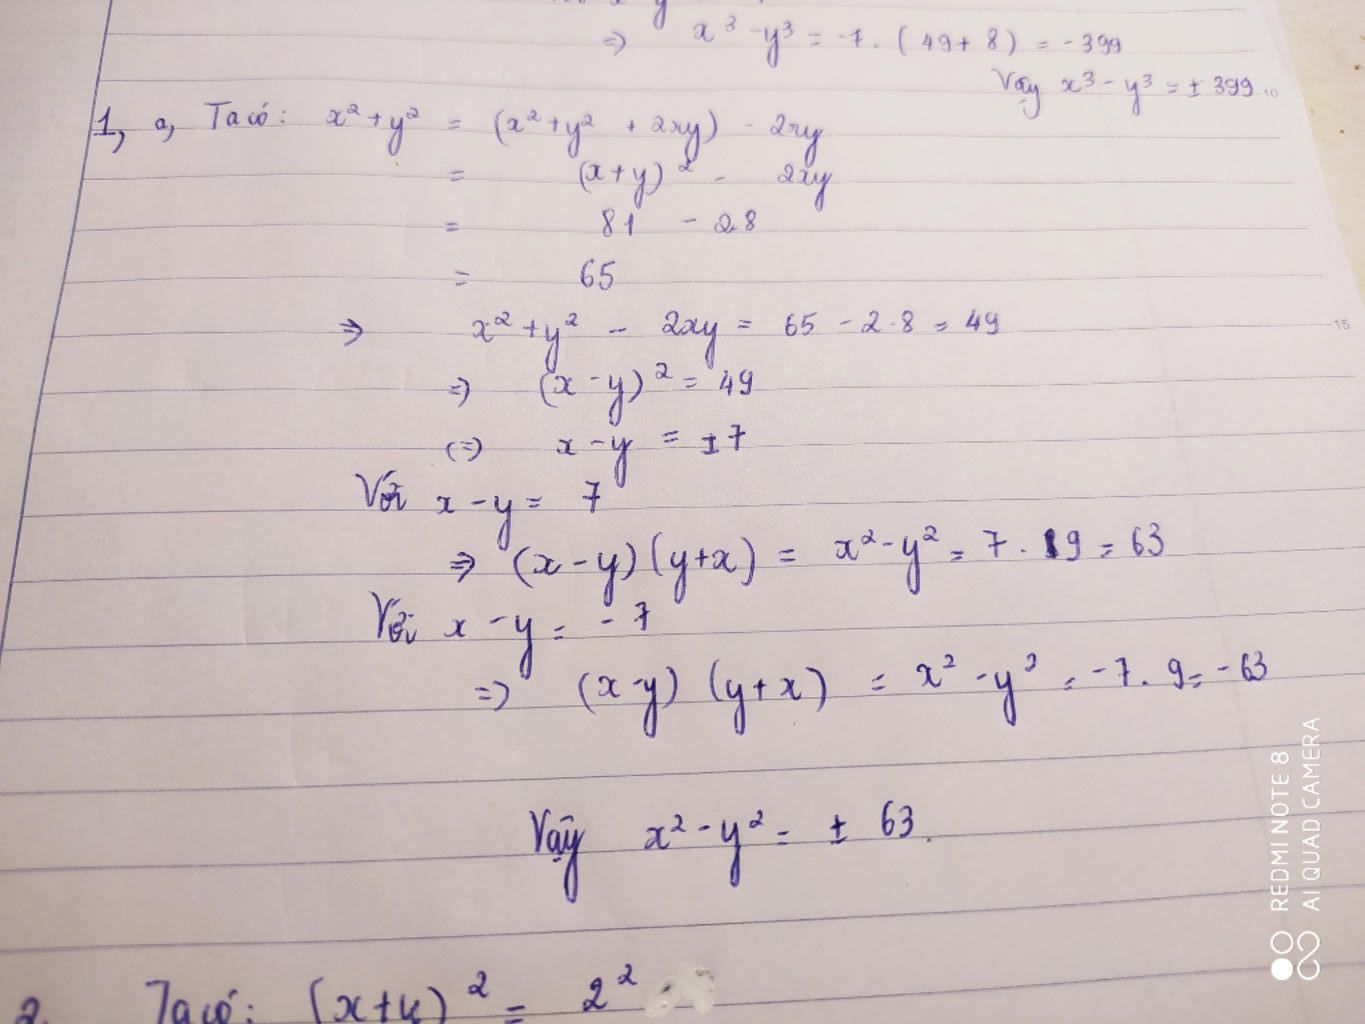 ⇒ x³ - y³ = -7 . (49 + 8) = -399
Vậy x³ - y³ = ± 399
10
1, a, Ta có: x² + y² = (x² + y² + 2xy) - 2xy
= (x + y)² - 2xy
= 81 - 28
= 65
⇒ x² + y² - 2xy = 65 - 2.8 = 49
15
⇒ (x - y)² = 49
(=) x - y = ± 7
Với x - y = 7
⇒ (x - y) (y + x) = x² - y² = 7 . 9 = 63
Với x - y = - 7
=) (x - y) (y + x) = x² - y² = -7 . 9 = - 63
Vậy x² - y² = ± 63.
2. Ta có: (x + y)² = 2²
REDMI NOTE 8
AI QUAD CAMERA